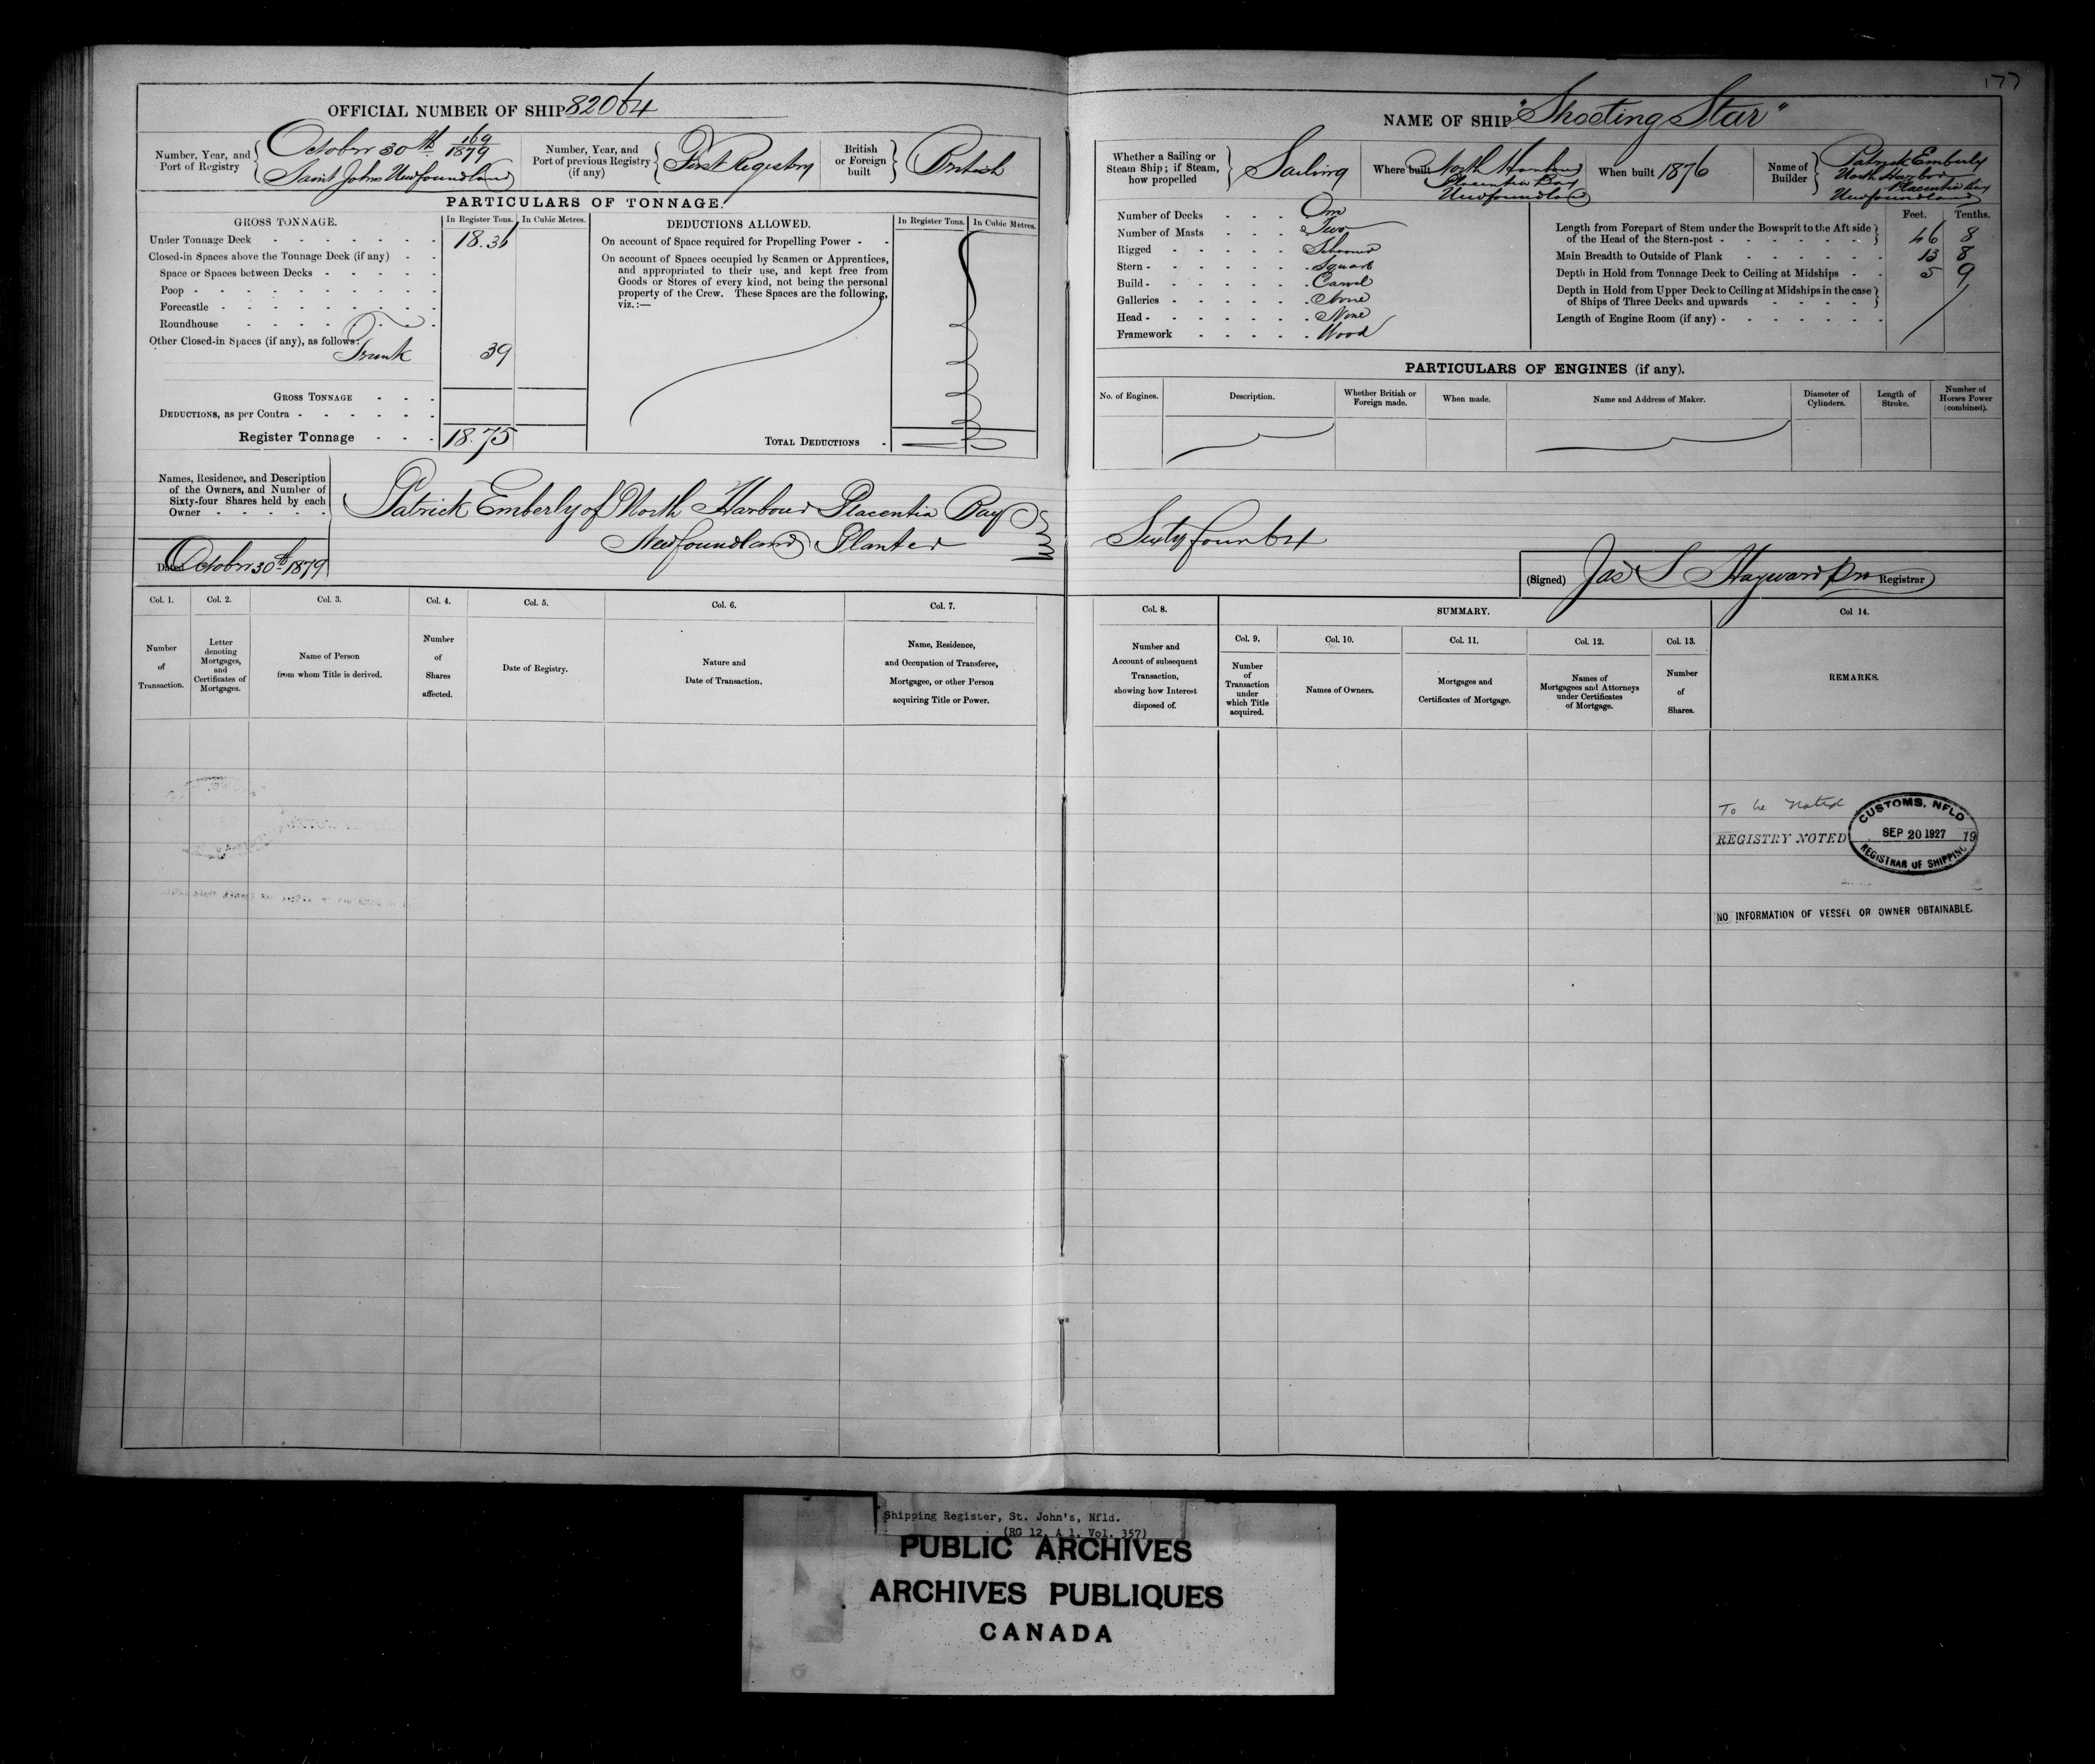 177
OFFICIAL NUMBER OF SHIP 82064
Number, Year, and Port of Registry { October 30th 169/1879 Saint Johns Newfoundland
Number, Year, and Port of previous Registry (if any) { First Registry
British or Foreign built } British
PARTICULARS OF TONNAGE.
GROSS TONNAGE. In Register Tons. In Cubic Metres.
Under Tonnage Deck - 18.36
Closed-in Spaces above the Tonnage Deck (if any) - -
Space or Spaces between Decks -
Poop -
Forecastle -
Roundhouse -
Other Closed-in Spaces (if any), as follows:
Trunk 39
GROSS TONNAGE - - -
DEDUCTIONS, as per Contra -
Register Tonnage - - - 18.75
DEDUCTIONS ALLOWED. In Register Tons. In Cubic Metres.
On account of Space required for Propelling Power - -
On account of Spaces occupied by Seamen or Apprentices,
and appropriated to their use, and kept free from
Goods or Stores of every kind, not being the personal
property of the Crew. These Spaces are the following,
viz.:—
TOTAL DEDUCTIONS -
Names, Residence, and Description
of the Owners, and Number of
Sixty-four Shares held by each
Owner - - - - -
Patrick Emberly of North Harbour Placentia Bay
Newfoundland Planter
Dated October 30th 1879
Col. 1. Col. 2. Col. 3. Col. 4. Col. 5. Col. 6. Col. 7.
Number of Transaction.
Letter denoting Mortgages, and Certificates of Mortgages.
Name of Person from whom Title is derived.
Number of Shares affected.
Date of Registry.
Nature and Date of Transaction.
Name, Residence, and Occupation of Transferee, Mortgagee, or other Person acquiring Title or Power.
NAME OF SHIP "Shooting Star"
Whether a Sailing or Steam Ship; if Steam, how propelled } Sailing
Where built North Harbour Placentia Bay Newfoundland
When built 1876
Name of Builder } Patrick Emberly North Harbor Placentia Bay Newfoundland
Number of Decks - - - One
Number of Masts - - - Two
Rigged - - - Schooner
Stern - - - Square
Build - - - Carvel
Galleries - - - None
Head - - - None
Framework - - - Wood
Feet. Tenths.
Length from Forepart of Stem under the Bowsprit to the Aft side of the Head of the Stern-post - } 46 8
Main Breadth to Outside of Plank - 13 8
Depth in Hold from Tonnage Deck to Ceiling at Midships - - 5 9
Depth in Hold from Upper Deck to Ceiling at Midships in the case of Ships of Three Decks and upwards - }
Length of Engine Room (if any) -
PARTICULARS OF ENGINES (if any).
No. of Engines. Description. Whether British or Foreign made. When made. Name and Address of Maker. Diameter of Cylinders. Length of Stroke. Number of Horses Power (combined).
Sixty four 64
(Signed) Jas S Hayward Registrar
Col. 8. SUMMARY. Col 14.
Col. 9. Col. 10. Col. 11. Col. 12. Col. 13.
Number and Account of subsequent Transaction, showing how Interest disposed of.
Number of Transaction under which Title acquired.
Names of Owners.
Mortgages and Certificates of Mortgage.
Names of Mortgagees and Attorneys under Certificates of Mortgage.
Number of Shares.
REMARKS.
To be noted
REGISTRY NOTED 19
CUSTOMS, NFLD
SEP 20 1927
REGISTRAR OF SHIPPING
NO INFORMATION OF VESSEL OR OWNER OBTAINABLE.
Shipping Register, St. John's, Nfld.
(RG 12, A 1, Vol. 357)
PUBLIC ARCHIVES
ARCHIVES PUBLIQUES
CANADA